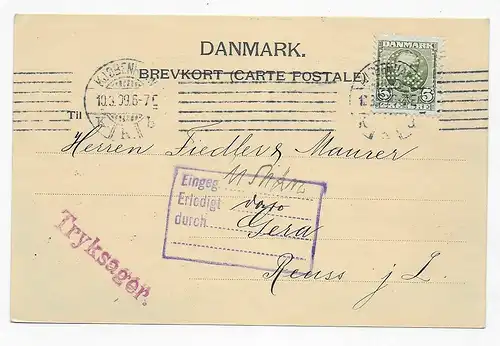 DANMARK.
BREVKORT (CARTE POSTALE)
DANMARK
5 5
KJØBENHAVN
10.3.09.6-7E
Til
Herren Fiedler & Maurer
Eingeg.
Erledigt
durch
Gera
Reuss j L.
Tryksager.